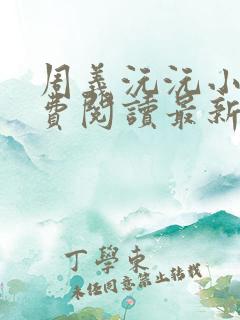 周義沅沅小
費閱讀最新
丁學東
未经同意禁止转载